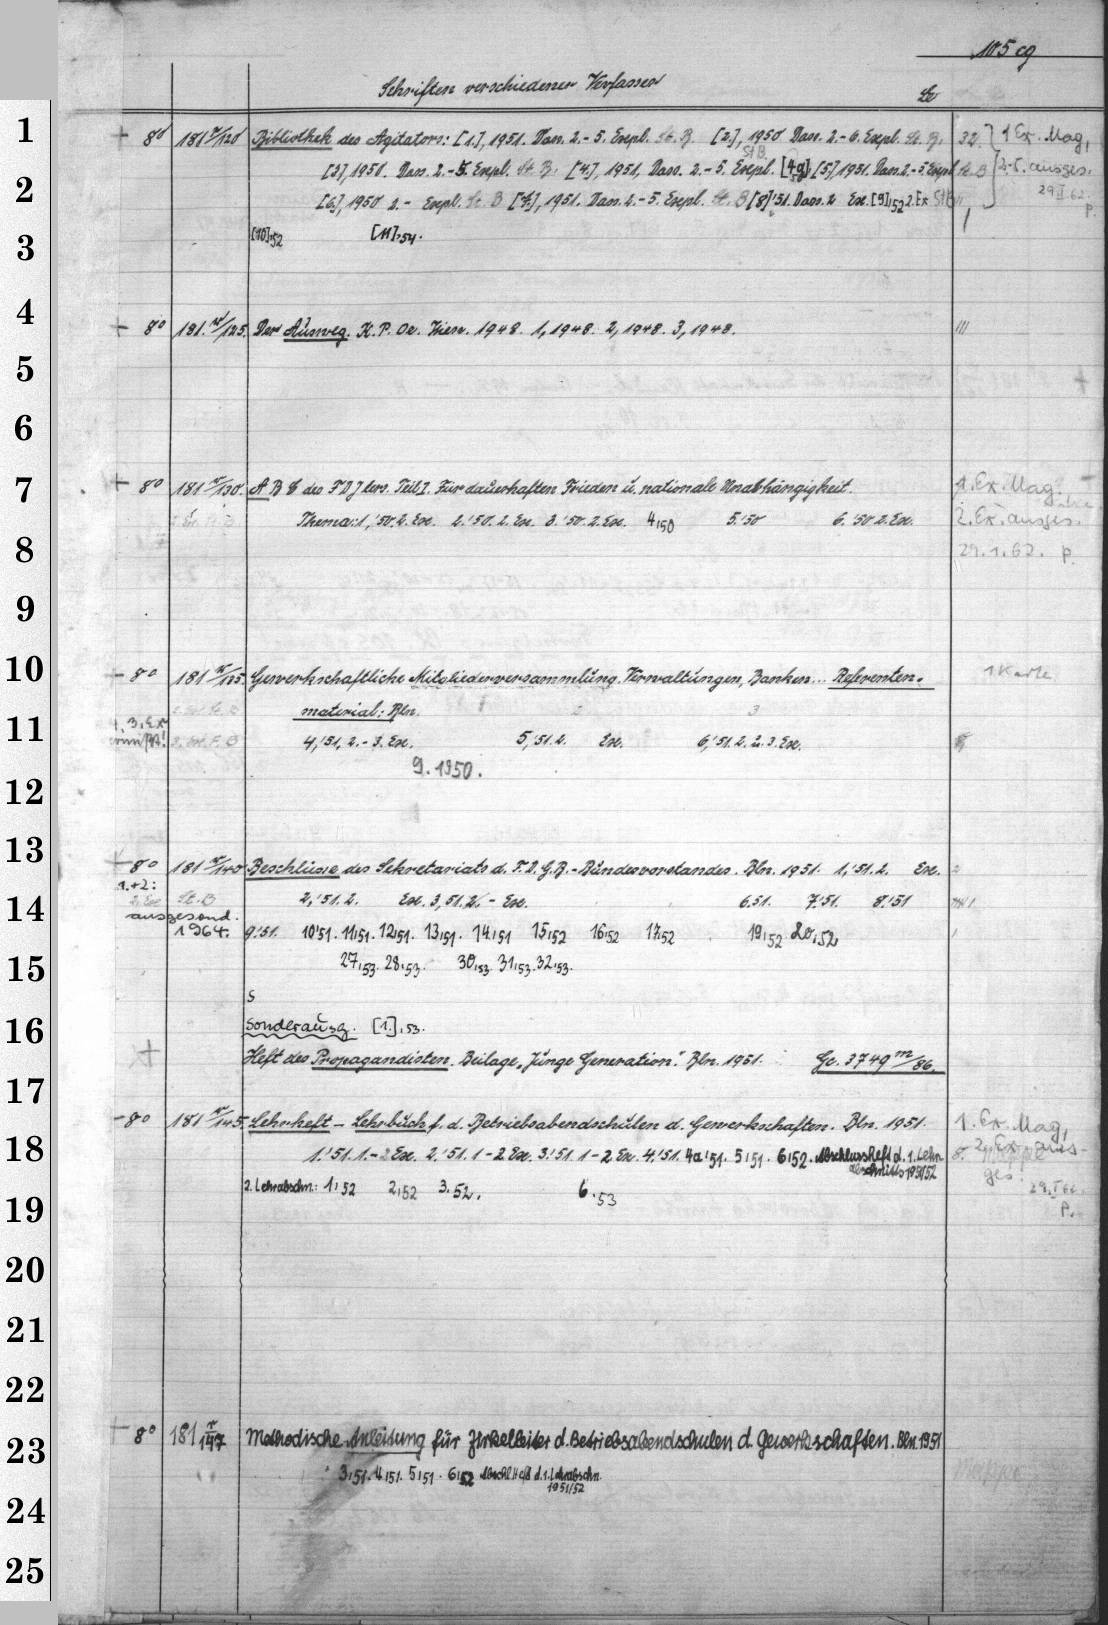 105 cg
Schriften verschiedener Verfasser
1
+ 8° 181 r/120 Bibliothek des Agitators: [1.], 1951. Dass. 2.-5. Exepl. St. B. [2.], 1950 Dass. 2.-6. Exepl. St. B. 32. 1 Ex. Mag.
[3], 1951. Dass. 2.-5. Exepl. St. B. [4.], 1951, Dass. 2.-5. Exepl. StB [4a] [5] 1951. Dass. 2.-5 Exepl. St. B 2.-5. ausges.
2
[6.], 1950 2.- Exepl. St. B [7.], 1951. Dass. 2.-5. Exepl. St. B [8] '51. Dass. 2 Ex. [9], 52 2. Ex StB 29. II. 62. p.
3
[10], 52 [11], 54.
4
+ 8° 181. r/125. Der Ausweg. K. P. Oe. Wien. 1948. 1, 1948. 2, 1948. 3, 1948. III
5
6
7
+ 8° 181 r/130. A B C des FDJlers. Teil I. Für dauerhaften Frieden u. nationale Unabhängigkeit. 1. Ex. Mag.
Thema: 1, '50. 2. Ex. 2. '50. 2. Ex. 3. '50. 2. Ex. 4, 50 5. '50 6. '50 2. Ex. 2. Ex. ausges.
8
29. 1. 62. p.
9
10
- 8° 181 r/135. Gewerkschaftliche Mitgliederversammlung. Verwaltungen, Banken... Referenten- 1 Karte
material: Bln. 2 3
11
1. 3. Ex vermißt! 3. Ex. F. B 4, '51, 2.-3. Ex. 5, '51. 2. Ex. 6, '51. 2. u. 3. Ex.
9. 1950.
12
13
+ 8° 181 r/140 Beschlüsse des Sekretariats d. F. D. G. B.-Bundesvorstandes. Bln. 1951. 1, '51. 2. Ex. 2
1.+2:
14
2. Ex St. B 2, '51. 2. Ex. 3, 51. 2. - Ex. 6. 51. 7. '51. 8. '51
ausgesond.
1964. 9. '51. 10 '51. 11, 51. 12, 51. 13, 51. 14, 51 15, 52 16, 52 17, 52 19, 52 20, 52,
15
27, 53. 28, 53. 30, 53. 31, 53. 32, 53.
S
16
Sonderausg. [1.], 53.
+ Heft des Propagandisten. Beilage „Junge Generation". Bln. 1951. Gc. 3749 m/86.
17
- 8° 181 r/145. Lehrheft - Lehrbuch f. d. Betriebsabendschulen d. Gewerkschaften. Bln. 1951. 1. Ex. Mag,
18
1. '51. 1.-2 Ex. 2. '51. 1-2 Ex. 3. '51 1-2 Ex. 4. '51. 4a '51. 5, 51. 6, 52. Abschlussheft d. 1. Lehr- 8. 2. Ex. aus-
abschnitts 1951/52 ges.
2. Lehrabschn.: 1, 52 2, 52 3. 52. 6. 53 29. I 62.
19
P.
20
21
22
23
+ 8° 181 r/147 Methodische Anleitung für Zirkelleiter d. Betriebsabendschulen d. Gewerkschaften. Bln. 1951
3, 51. 4, 51. 5, 51. 6, 52 Abschl. Heft d. 1. Lehrabschn. Mappe
1951/52
24
25